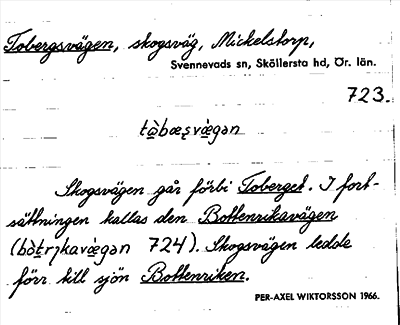 Tobergsvägen, skogsväg, Mickelstorp,
Svennevads sn, Sköllersta hd, Ör. län.
723.
tòbæʂvǽgən
Skogsvägen går förbi Toberget. I fort-
sättningen kallas den Bottenrikavägen
(bòtrɩkavǽgən 724). Skogsvägen ledde
förr till sjön Bottenriken.
PER-AXEL WIKTORSSON 1966.